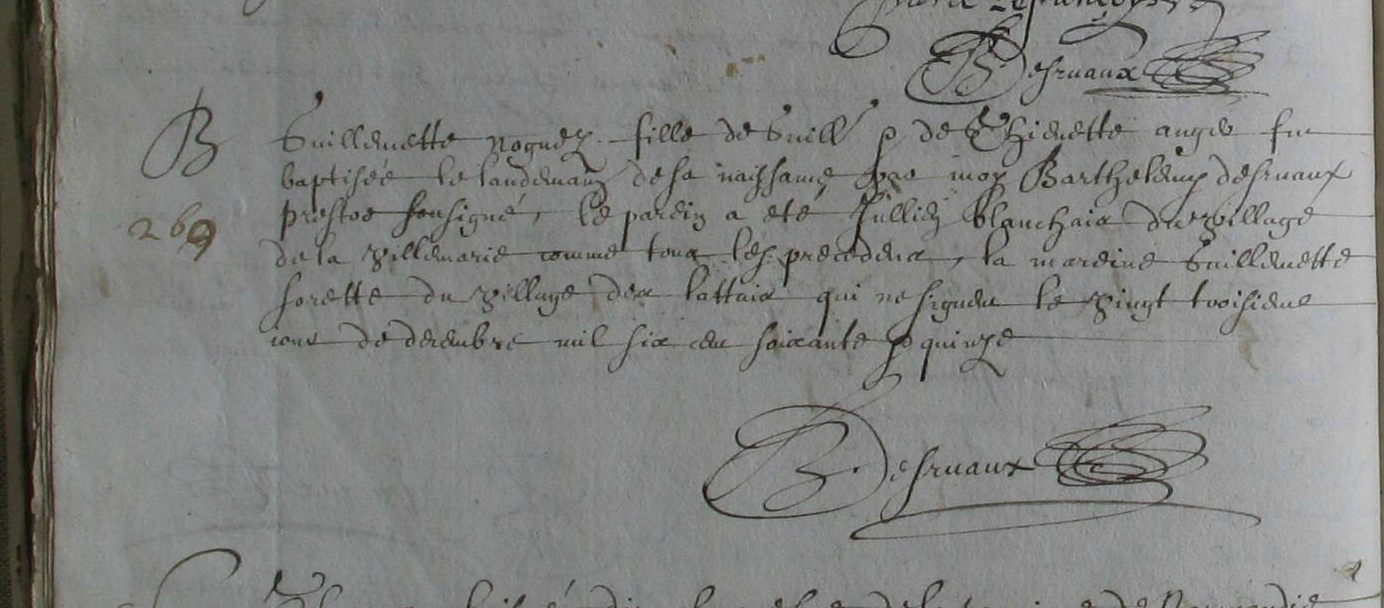 B Desruaux
B
Guillemette noguez fille de Guill et de Thienette anger fut
baptisée le landemain de sa naissance par moy Barthelemy desruaux
prestre sousigné, le parein a eté Jullien blanchaix du village
269
de la villemarie comme tous les precedens, la mareine Guillemette
sorette du village des qui ne signent le vingt troisieme
iour de decembre mil six cens soixante et quinze
B Desruaux